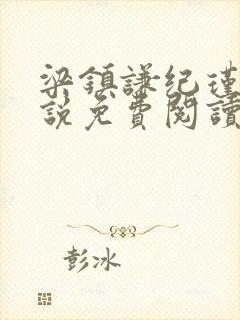 梁鎮謙纪瑾
說免費閱讀
彭冰